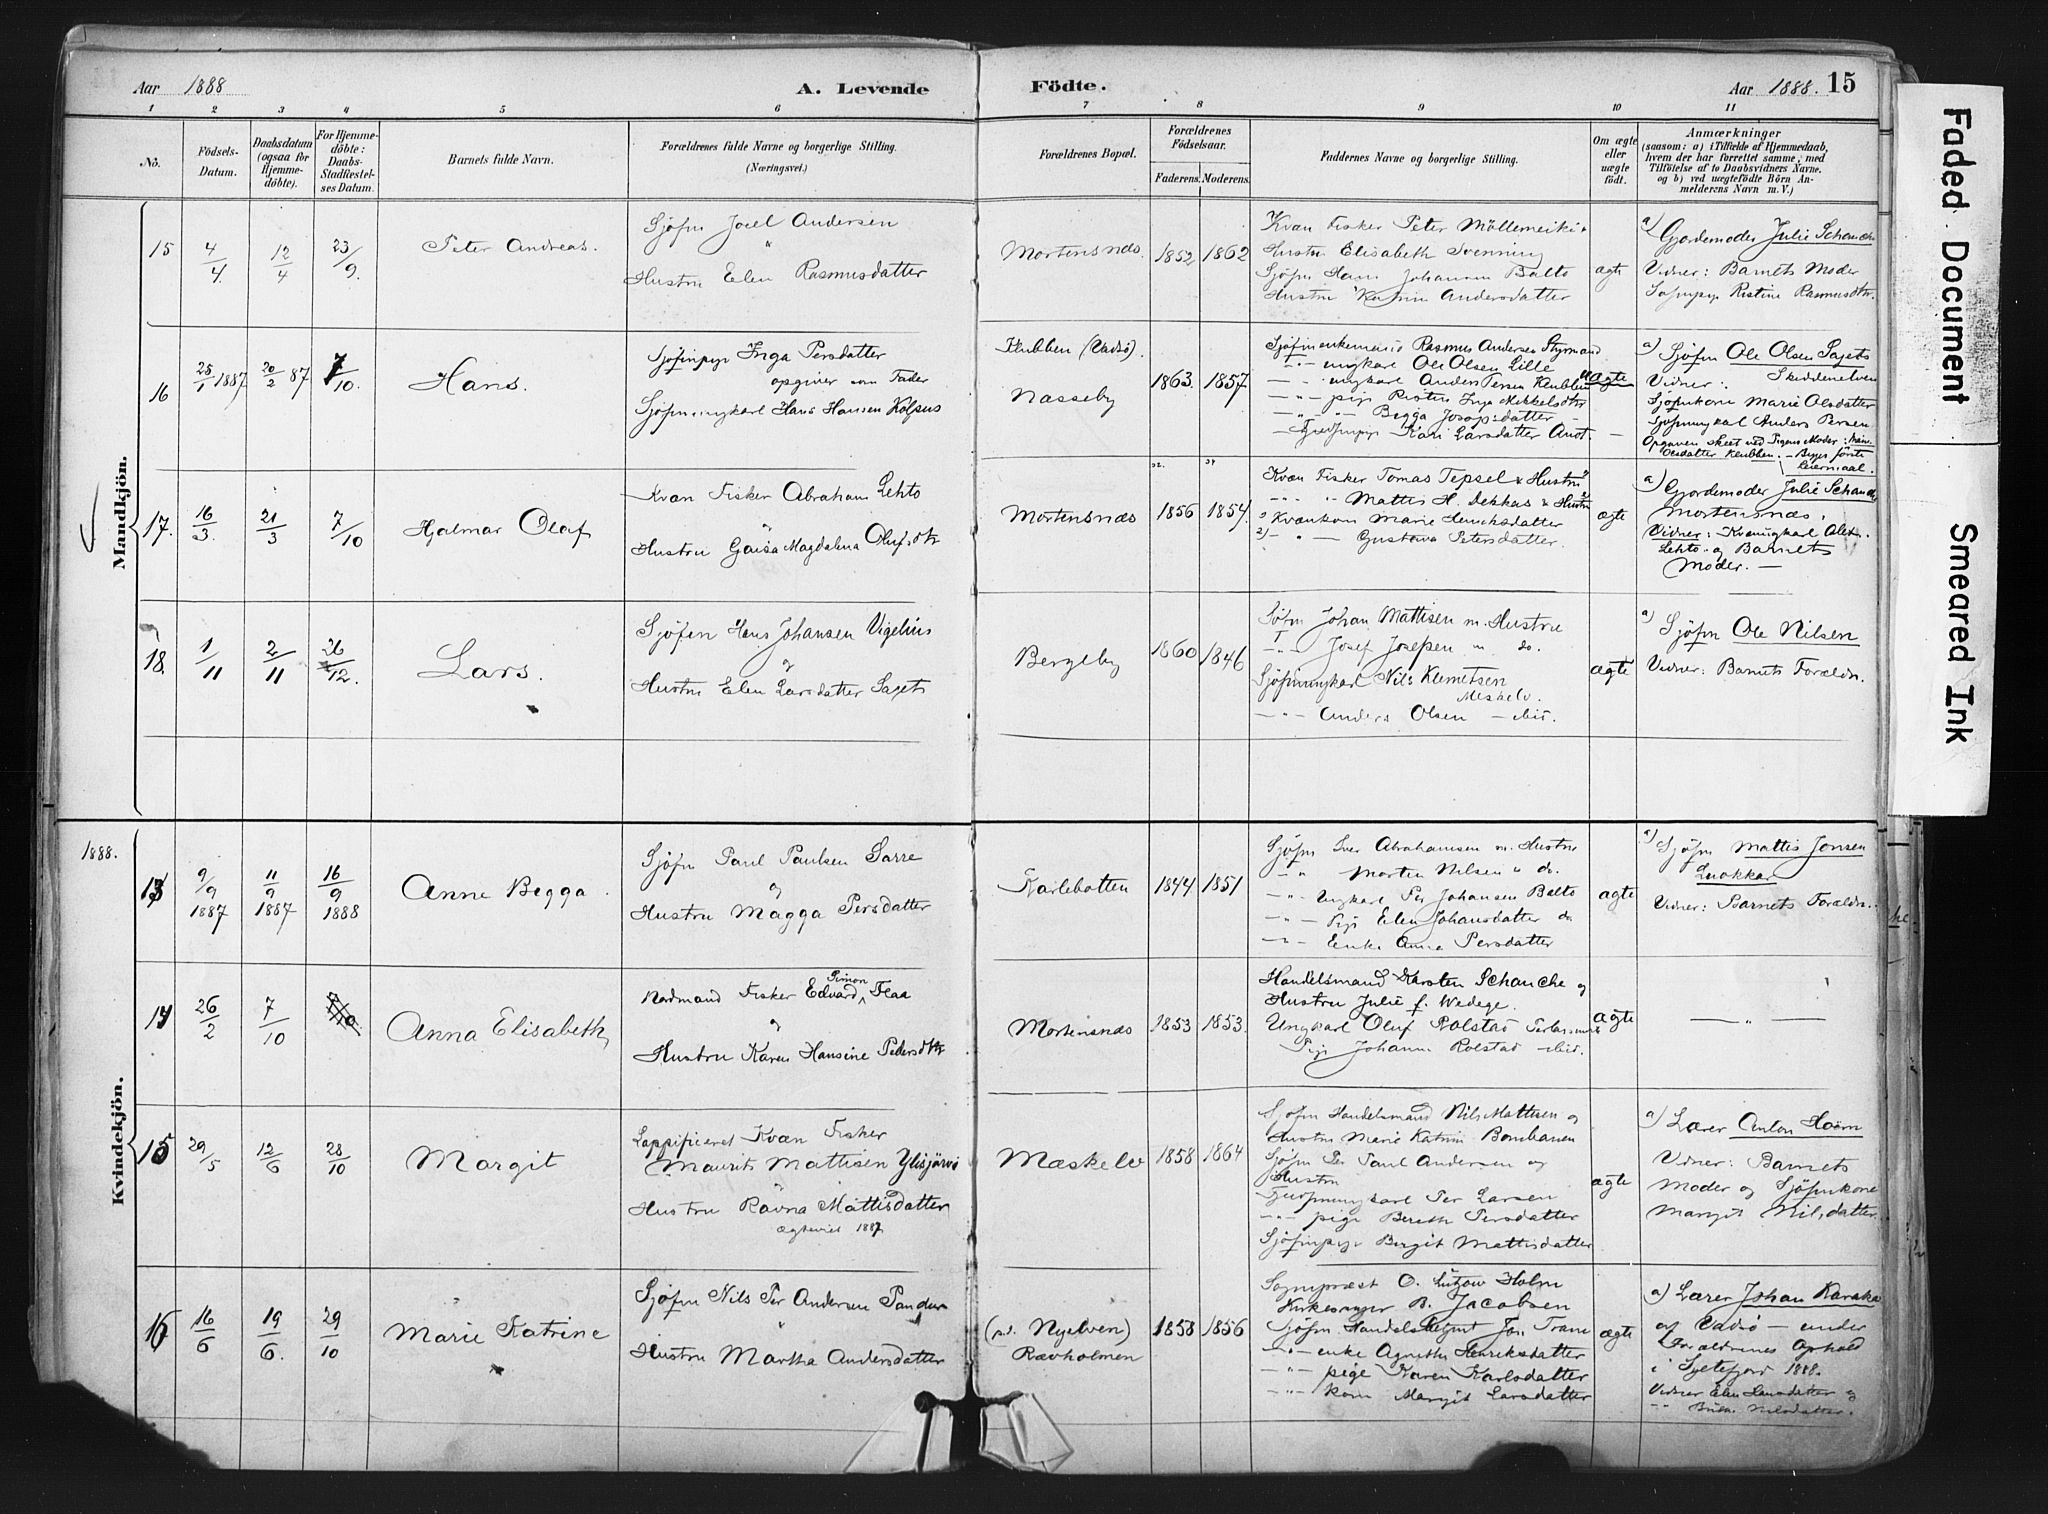 Aar 1888
A. Levende
Födte.
Aar 1888.
15
1 2 3 4 5 6 7 8 9 10 11
No.
Födsels-
Datum.
Daabsdatum
(ogsaa for
Hjemme-
döbte).
For Hjemme-
döbte:
Daabs-
Stadfæstel-
ses Datum.
Barnets fulde Navn.
Forældrenes fulde Navne og borgerlige Stilling.
(Næringsvei.)
Forældrenes Bopæl.
Forældrenes
Födselsaar.
Faderens. Moderens.
Faddernes Navne og borgerlige Stilling.
Om ægte
eller
uægte
födt.
Anmærkninger
(saasom: a) i Tilfælde af Hjemmedaab,
hvem der har forrettet samme, med
Tilföielse af to Daabsvidners Navne,
og b) ved uægtefödte Börn An-
melderens Navn m. V.)
Mandkjön.
15 4/4. 12/4 23/9. Peter Andreas.
Sjöfin Joel Andersen
"
Hustru Elen Rasmusdatter
Mortensnæs. 1852 1862
Kvæn Fisker Peter
Hustru Elisabeth Svenning
Sjöfin Hans Johannsen Balto
Hustru Katrin Andersdatter
ægte
a) Gjordemoder Julie Schanche
Vidner: Barnets Moder
Ristine Rasmusdtr.
16 25/1 1887 20/2 87 7/10. Hans.
Sjöfinpige Inga Persdatter
opgiver som Fader
Sjöfinungkarl Hans Hansen Kolpus
Klubben (Vadsö).
Næsseby
1863. 1857
Rasmus Andersen Styrmand
— " — ungkarl Ole Olsen Lille
— " — ungkarl Anders Persen Klubben
— " — pige Ristin Inga Mikkelsdtr
— " — " Begga Josepsdatter
Kari Larsdatter
uægte
a) Sjöfin Ole Olsen Sagets
Vidner: Skiddenelven
Sjöfinkone Marie Olsdatter
Sjöfinungkarl Anders Persen
Opgaven skeet ved Pigens Moder:
Olsdatter Klubben. — Begges förste
Leiermaal.
17. 16/3. 21/3 7/10 Hjalmar Olaf
Kvæn Fisker Abraham Lehto
og
Hustru Magdalena Olufsdtr
Mortensnæs 1856 1854.
Kvæn Fisker Tomas Tepsel & Hustru 1)
" " " Mattis H. Dekkas & Hustru 2)
1) Kvænkone Marie Henriksdatter
2) — " — Gustava Petersdatter.
ægte
a) Gjordemoder Julie Schanche
Mortensnæs.
Vidner: Kvænungkarl Alex.
Lehto og Barnets
Moder. —
18. 1/11 2/11 26/12. Lars.
Sjöfin Hans Johansen Vigelius
og
Hustru Elen Larsdatter Sagets
Bergeby 1860 1846
Sjöfin Johan Mattisen m. Hustru
— " — Josef Josepsen m. do.
Sjöfinungkarl Nils Klemetsen
Meskelv.
— " — Anders Olsen — ibid.
ægte
a) Sjöfin Ole Nilsen
Vidner: Barnets Forældre.
1888.
Kvindekjön.
13 9/9 1887 11/9 1887 16/9 1888 Anne Begga.
Sjöfin Paul Paulsen Sarre
og
Hustru Magga Persdatter
Karlebotten 1844 1851
Sjöfin Iver Abrahamsen m. Hustru
— " — Morten Nilsen " do.
— " — Ungkarl Per Johansen Balto
— " — Pige Elen Johansdatter do
— " — Enke Anne Persdatter
ægte
a) Sjöfin Mattis Jonsen
Luokkar
Vidner: Barnets Forældre.
14 26/2 7/10 Anna Elisabeth
Nordmand Fisker Edvard Simon Flaa
og
Hustru Karen Hansine Pedersdtr
Mortensnæs 1853 1853.
Handelsmand Karsten Schanche og
Hustru Julie f. Wedege.
Ungkarl Oluf Rolstad
Pige Johanne Rolstad — ibid.
ægte
— " —
15 29/5 12/6 28/10 Margit
Lappificeret Kvæn Fisker
Maurits Mattisen Ylisjärvi
og
Hustru Ravna Mattisdatter
ægteviet 1887
Mæskelv 1858 1864
Sjöfin Handelsmand Nils Mathisen og
Hustru Marie Katrine
Sjöfin Per Paul Andersen og
Hustru
Per Larsen
— " — pige Berethe Persdatter
Sjöfinpige Bergit Mattisdatter
ægte
a) Lærer Anton Hoëm
Vidner: Barnets
Moder og Sjöfinkone
Margit Nilsdatter.
16 16/6 19/6. 29/10 Marie Katrine
Sjöfin Nils Per Andersen
"
Hustru Martha Andersdatter
Nyelven)
Ravholmen
1858 1856
Sognepræst O. Lützow Holm
Kirkesanger B. Jacobsen
Sjöfin Jon Trane
— " — enke Agnethe Henriksdatter
— " — pige Karen Karlsdatter
— " — kone Margit Larsdatter
ægte
a) Lærer Johan Karaka
af Vadsö — under
Forældrenes Ophold
i Syltefjord 1888.
Vidner Elen Hansdatter og
" " Nilsdatter.
Faded Document
Smeared Ink